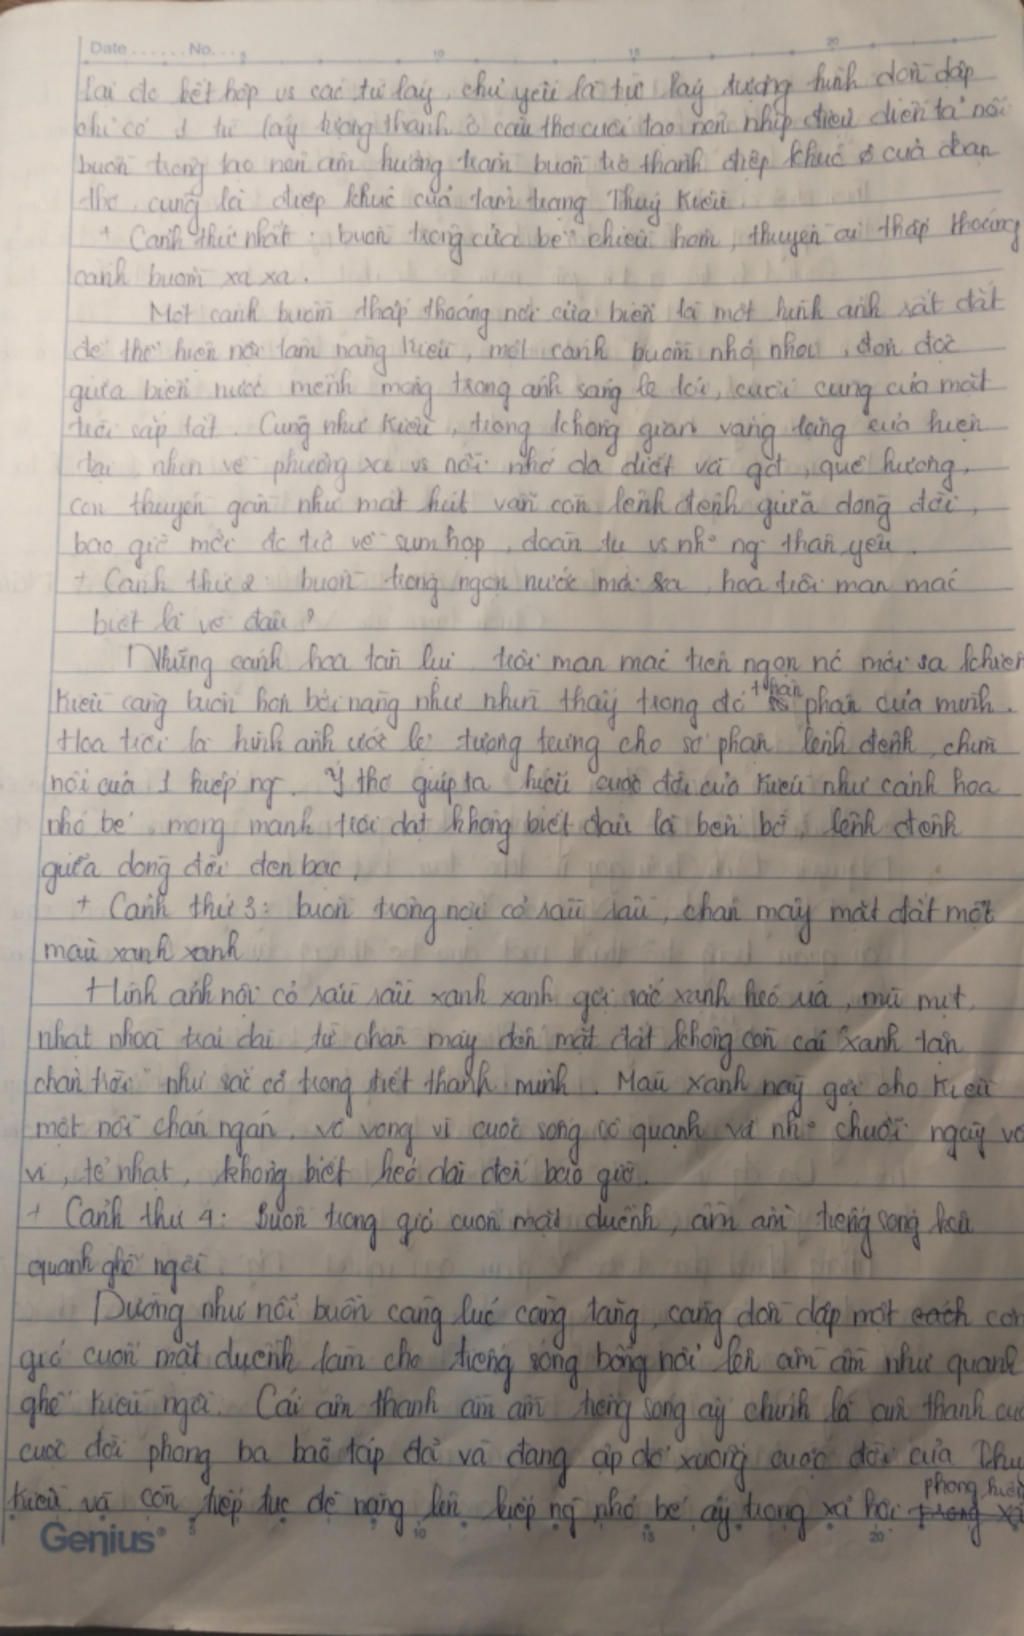 Date ...... No. ... 5 10 15 20
lại đc kết hợp vs các từ láy, chủ yếu là từ láy tượng hình dồn dập
chỉ có 1 từ láy tượng thanh ở câu thơ cuối tạo nên nhịp điệu diễn tả nỗi
buồn trong tạo nên âm hưởng trầm buồn trở thành điệp khúc của đoạn
thơ, cũng là điệp khúc của tâm trạng Thuý Kiều.
+ Cảnh thứ nhất: buồn trông cửa bể chiều hôm, thuyền ai thấp thoáng
cánh buồm xa xa.
Một cánh buồm thấp thoáng nơi cửa biển là một hình ảnh rất đắt
để thể hiện nội tâm nàng Kiều, một cánh buồm nhỏ nhoi, đơn độc
giữa biển nước mênh mông trong ánh sáng le lói, cuối cùng của mặt
trời sắp tắt. Cũng như Kiều, trong không gian vắng lặng của hiện
tại, nhìn về phương xa vs nỗi nhớ da diết về gđ, quê hương,
con thuyền gần như mất hút vẫn còn lênh đênh giữa dòng đời,
bao giờ mới đc trở về sum họp, đoàn tụ vs nh° ng thân yêu.
+ Cảnh thứ 2: buồn trông ngọn nước mới sa, hoa trôi man mác
biết là về đâu?
Những cánh hoa tàn lụi trôi man mác trên ngọn nc mới sa khiến
Kiều càng buồn hơn bởi nàng như nhìn thấy trong đó thân phận của mình.
Hoa trôi là hình ảnh ước lệ tượng trưng cho số phận lênh đênh, chìm
nổi của 1 kiếp ng. Ý thơ giúp ta hiểu cuộc đời của Kiều như cánh hoa
nhỏ bé, mong manh trôi dạt không biết đâu là bến bờ, lênh đênh
giữa dòng đời đen bạc,
+ Cảnh thứ 3: buồn trông nội cỏ rầu rầu, chân mây mặt đất một
màu xanh xanh
Hình ảnh nội cỏ rầu rầu xanh xanh gợi sắc xanh héo úa, mù mịt,
nhạt nhoà trải dài từ chân mây đến mặt đất không còn cái "xanh tận
chân trời" như sắc cỏ trong tiết thanh minh. Màu xanh này gợi cho Kiều
một nỗi chán ngán, vô vọng vì cuộc sống cô quạnh và nh° chuỗi ngày vô
vị, tẻ nhạt, không biết kéo dài đến bao giờ.
+ Cảnh thứ 4: Buồn trông gió cuốn mặt duềnh, ầm ầm tiếng sóng kêu
quanh ghế ngồi
Dường như nỗi buồn càng lúc càng tăng, càng dồn dập một cách cơn
gió cuốn mặt duềnh làm cho tiếng sóng bỗng nổi lên ầm ầm như quanh
ghế Kiều ngồi. Cái âm thanh ầm ầm tiếng sóng ấy chính là âm thanh của
cuộc đời phong ba bão táp đã và đang ập đổ xuống cuộc đời của Thuý
Kiều và còn tiếp tục đè nặng lên kiếp ng nhỏ bé ấy trong xã hội phong kiến
Genius 5 10 15 20